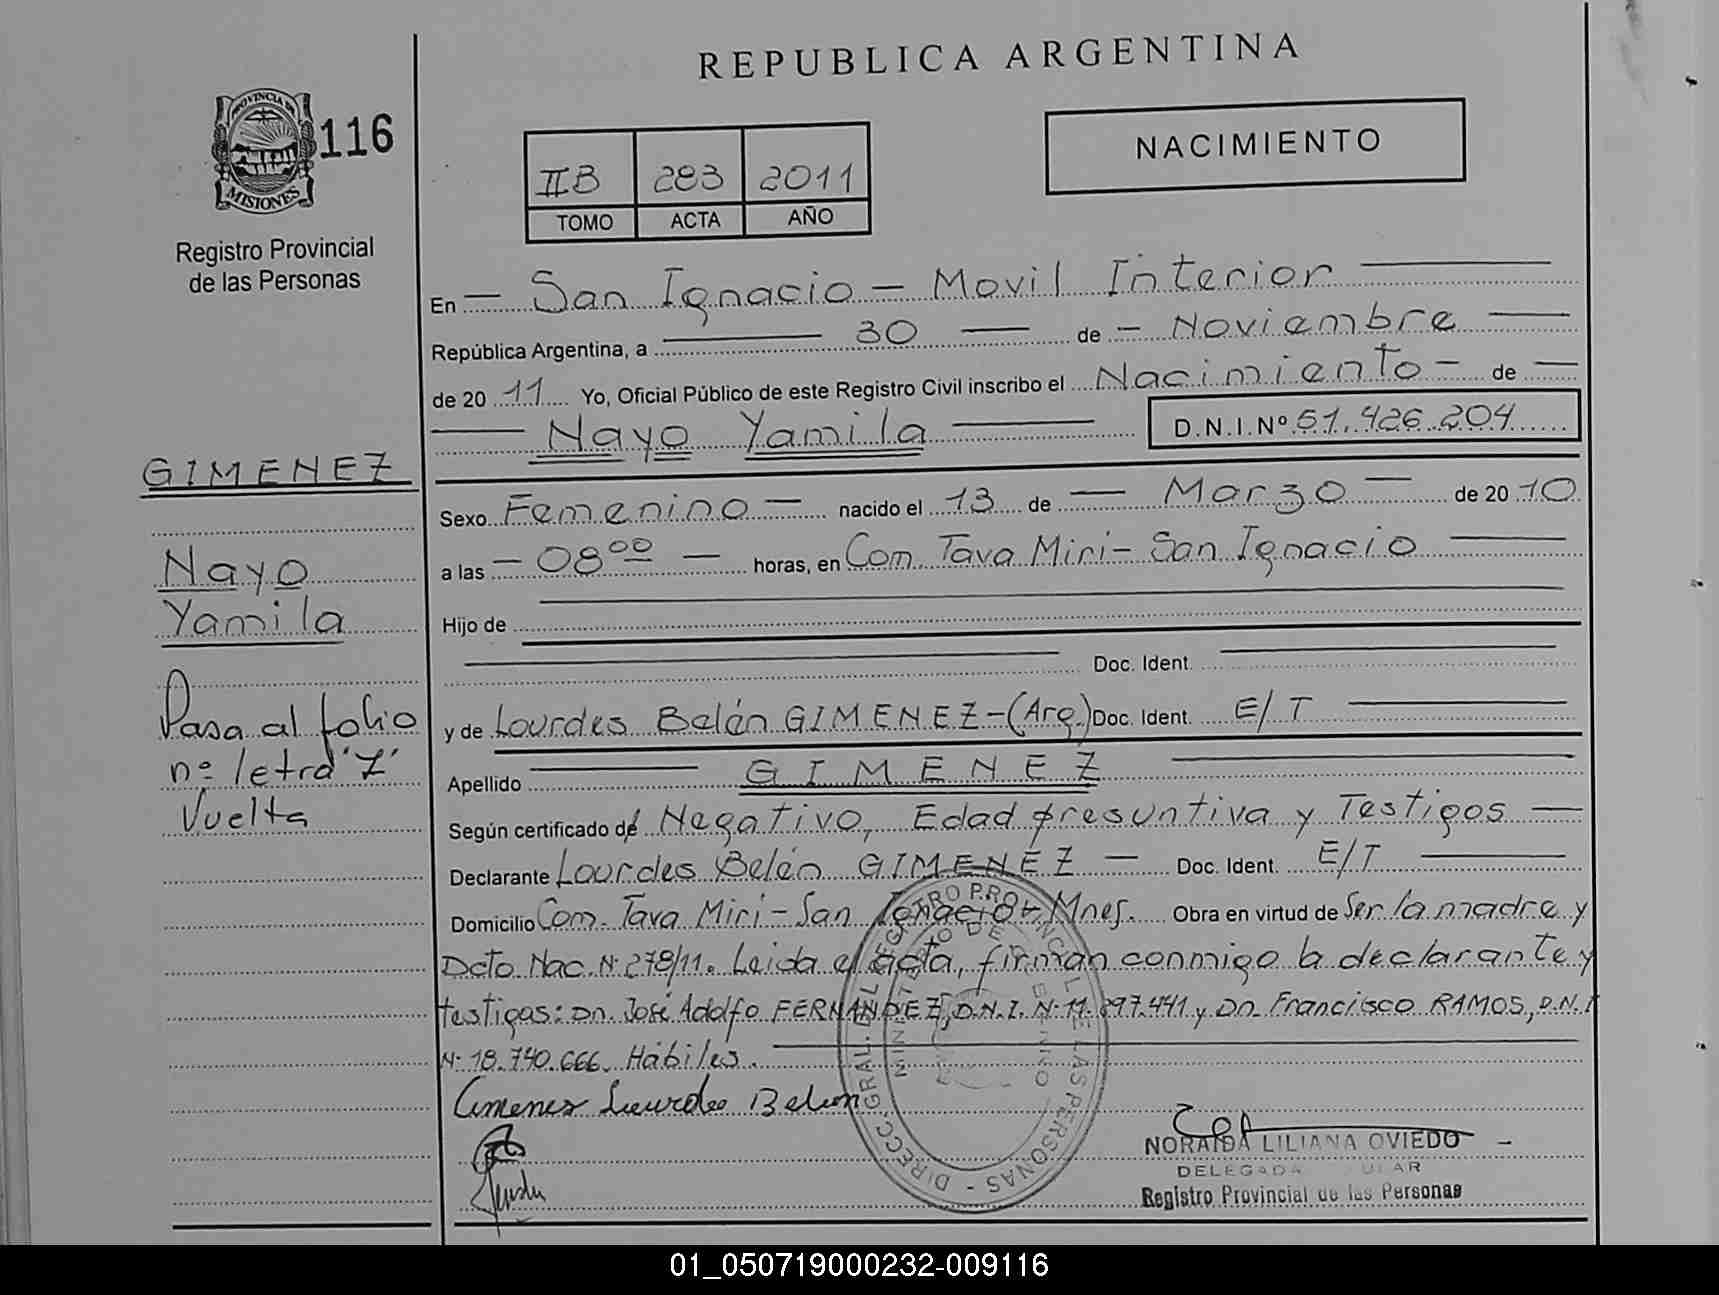 REPUBLICA ARGENTINA
PROVINCIA DE
MISIONES
116
NACIMIENTO
IIB 283 2011
TOMO ACTA AÑO
Registro Provincial
de las Personas
En — San Ignacio — Movil Interior —
República Argentina, a — 30 — de — Noviembre —
de 20 11 Yo, Oficial Público de este Registro Civil inscribo el Nacimiento — de —
— Nayo Yamila — D.N.I.Nº 51.426.204
GIMENEZ
Nayo
Yamila
Pasa al folio
nº letra "Z"
Vuelta
Sexo Femenino — nacido el 13 de — Marzo — de 20 10
a las — 08⁰⁰ — horas, en Com. Tava Miri — San Ignacio —
Hijo de
Doc. Ident.
y de Lourdes Belén GIMENEZ — (Arg.) Doc. Ident. E/T —
Apellido — GIMENEZ —
Según certificado de Negativo, Edad presuntiva y Testigos —
Declarante Lourdes Belén GIMENEZ — Doc. Ident. E/T —
Domicilio Com. Tava Miri — San Ignacio — Mnes. Obra en virtud de Ser la madre y
Dcto Nac. Nº 278/11. Leida el acta, firman conmigo la declarante y
testigos: Dn. José Adolfo FERNANDEZ, D.N.I. Nº 11.897.441 y Dn. Francisco RAMOS, D.N.I
Nº 18.740.666. Hábiles. —
Gimenez Lourdes Belen
DIRECC. GRAL. DEL REGISTRO PROVINCIAL DE LAS PERSONAS -
MINISTERIO DE
NORAIDA LILIANA OVIEDO
DELEGADA
Registro Provincial de las Personas
01_050719000232-009116